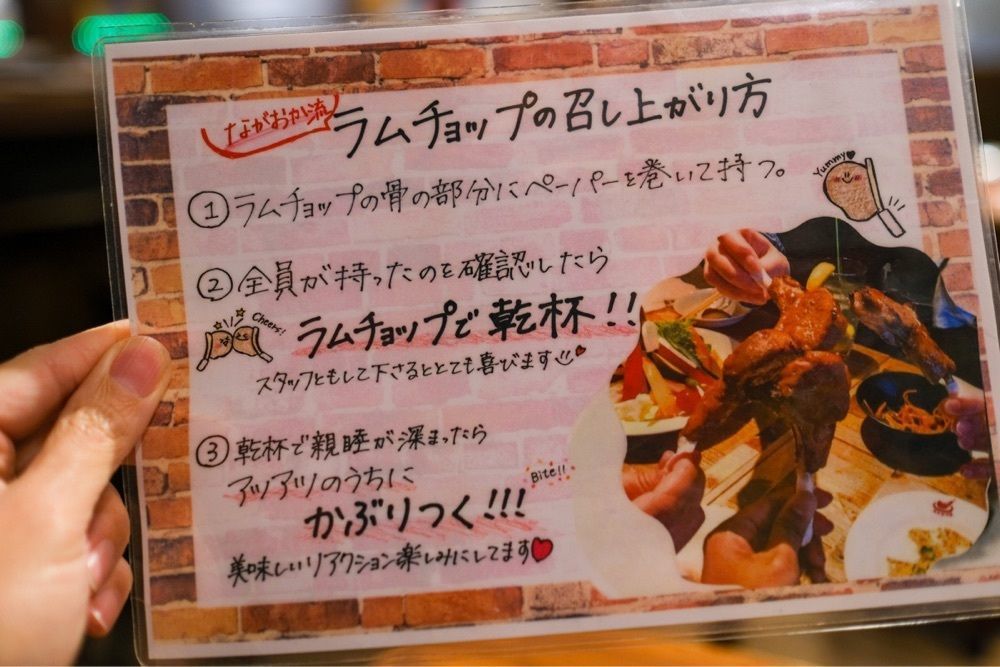 ながおか流
ラムチョップの召し上がり方
Yummy♥
①ラムチョップの骨の部分にペーパーを巻いて持つ。
②全員が持ったのを確認したら
Cheers!
ラムチョップで乾杯!!
スタッフともして下さるととても喜びます♥
③乾杯で親睦が深まったら
アツアツのうちに
Bite!!
かぶりつく!!!
美味しいリアクション楽しみにしてます♥